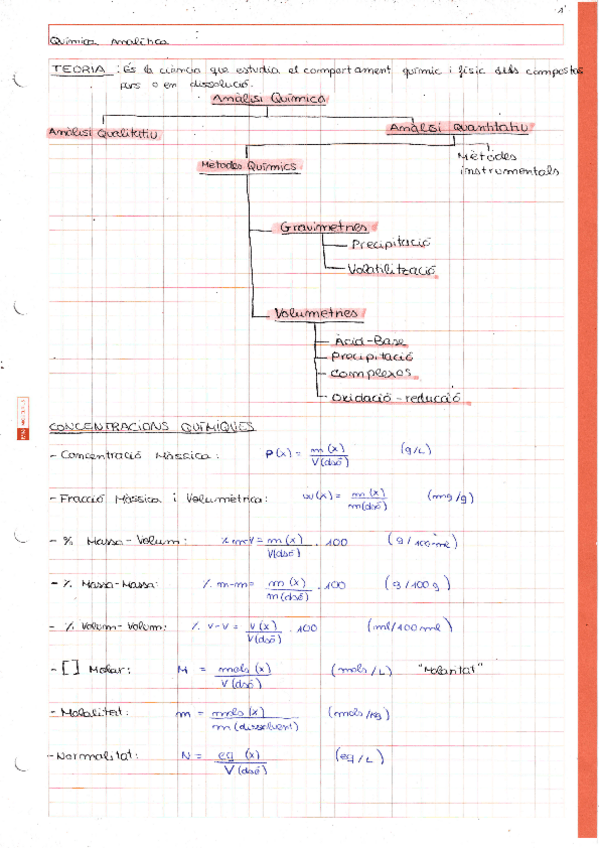 Química Analítica
TEORIA : És la ciència que estudia el comportament químic i físic dels compostos
purs o en dissolució.
Anàlisi Química
Anàlisi Qualitatiu
Anàlisi Quantitatiu
Mètodes Químics
Mètodes
instrumentals
Gravimetries
Precipitació
Volatilització
Volumetries
Àcid-Base
Precipitació
Complexos
Oxidació-reducció
CONCENTRACIONS QUÍMIQUES
- Concentració Màssica : P(x) = m(x) / V(dsó) (g/L)
- Fracció Màssica i Volumètrica : w(x) = m(x) / m(dsó) (mg/g)
- % Massa-Volum : % m-V = m(x) / V(dsó) . 100 (g/100ml)
- % Massa-Massa : % m-m = m(x) / m(dsó) . 100 (g/100g)
- % Volum-Volum : % v-v = v(x) / V(dsó) . 100 (ml/100ml)
- [ ] Molar : M = mols(x) / V(dsó) (mols/L) "Molaritat"
- Molalitat : m = mols(x) / m(dissolvent) (mols/kg)
- Normalitat : N = eq(x) / V(dsó) (eq/L)